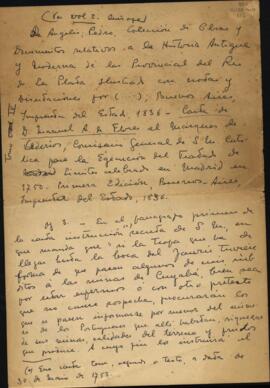 (
De Angelis, Pedro, Colección de Obras y
Documentos relativos a la Historia Antigua
y Moderna de las Provincias del Rio
de la Plata ilustrada con notas y
Disertaciones por (...), Buenos Aires,
Imprenta del Estado, 1836 - Carta de
D. Manuel A. de Flores al Marques de
Valdelirios, Comisario General de S. M. Cato-
lica para la Egecucion del Tratado de
Limites celebrado en Madrid en
1750. Primera Edición Buenos Aires,
Imprenta del Estado, 1836.
Pg 3. - En el paragrafo primero de
la instrucción secreta de S. M., en
que manda que "si la Tropa que ha de
llegar hasta la boca del Jaurú tuviere
forma de que pasen algunos de mis sub-
ditos a las minas de Cuyabá, bien sea
por estar enfermos ó con otro pretexto
que no cause sospecha, procuraran los
que si pasen informarse por menos del numero
de los Portugueses que alli habitan, riquezas
de sus minas, calidades del terreno y frutos
que produce. A cuyo fin los instruirá el
(*) Esta carta
30 de de 1753.